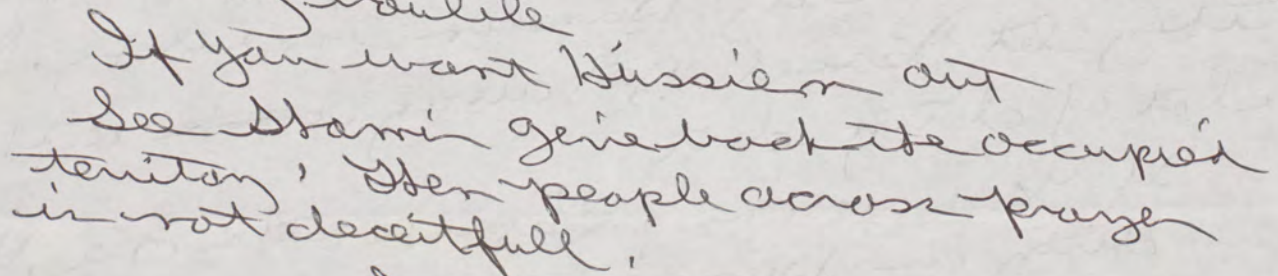 If you want Hussien out
See Shamir give back the occupied
territory, Then people across prayer
is not deceitfull.